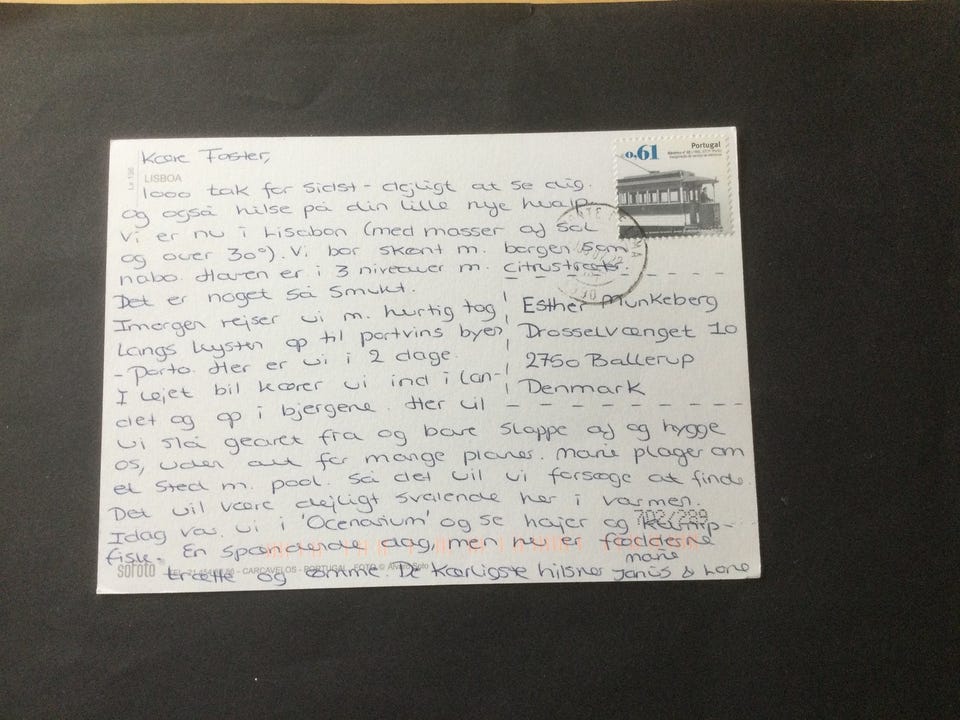 Kære Faster,
LISBOA
1000 tak for sidst - dejligt at se dig.
og også hilse på din lille nye hvalp.
Vi er nu i Lisabon (med masser af sol
og over 30°). Vi bor skønt m. borgen som
nabo. Haven er i 3 niveauer m. citrustræer.
Det er noget så smukt.
Imorgen rejser vi m. hurtig tog
langs kysten op til portvins byen
- Porto. Her er vi i 2 dage.
I lejet bil kører vi ind i lan-
det og op i bjergene. Her vil
vi slå gearet fra og bare slappe af og hygge
os, uden alt for mange planer. Marie plager om
et sted m. pool. Så det vil vi forsøge at finde.
Det vil være dejligt svalende her i varmen.
Idag var vi i 'Ocenarium' og se hajer og klump-
fisk. En spændende dag, men nu er fødderne
trætte og ømme. De kærligste hilsner Marie
Janus & Lone
Portugal
€0,61
Esther Munkeberg
Drosselvænget 10
2750 Ballerup
Denmark
702/289
soroto
CARCAVELOS - PORTUGAL - FOTO © Alvaro Soto